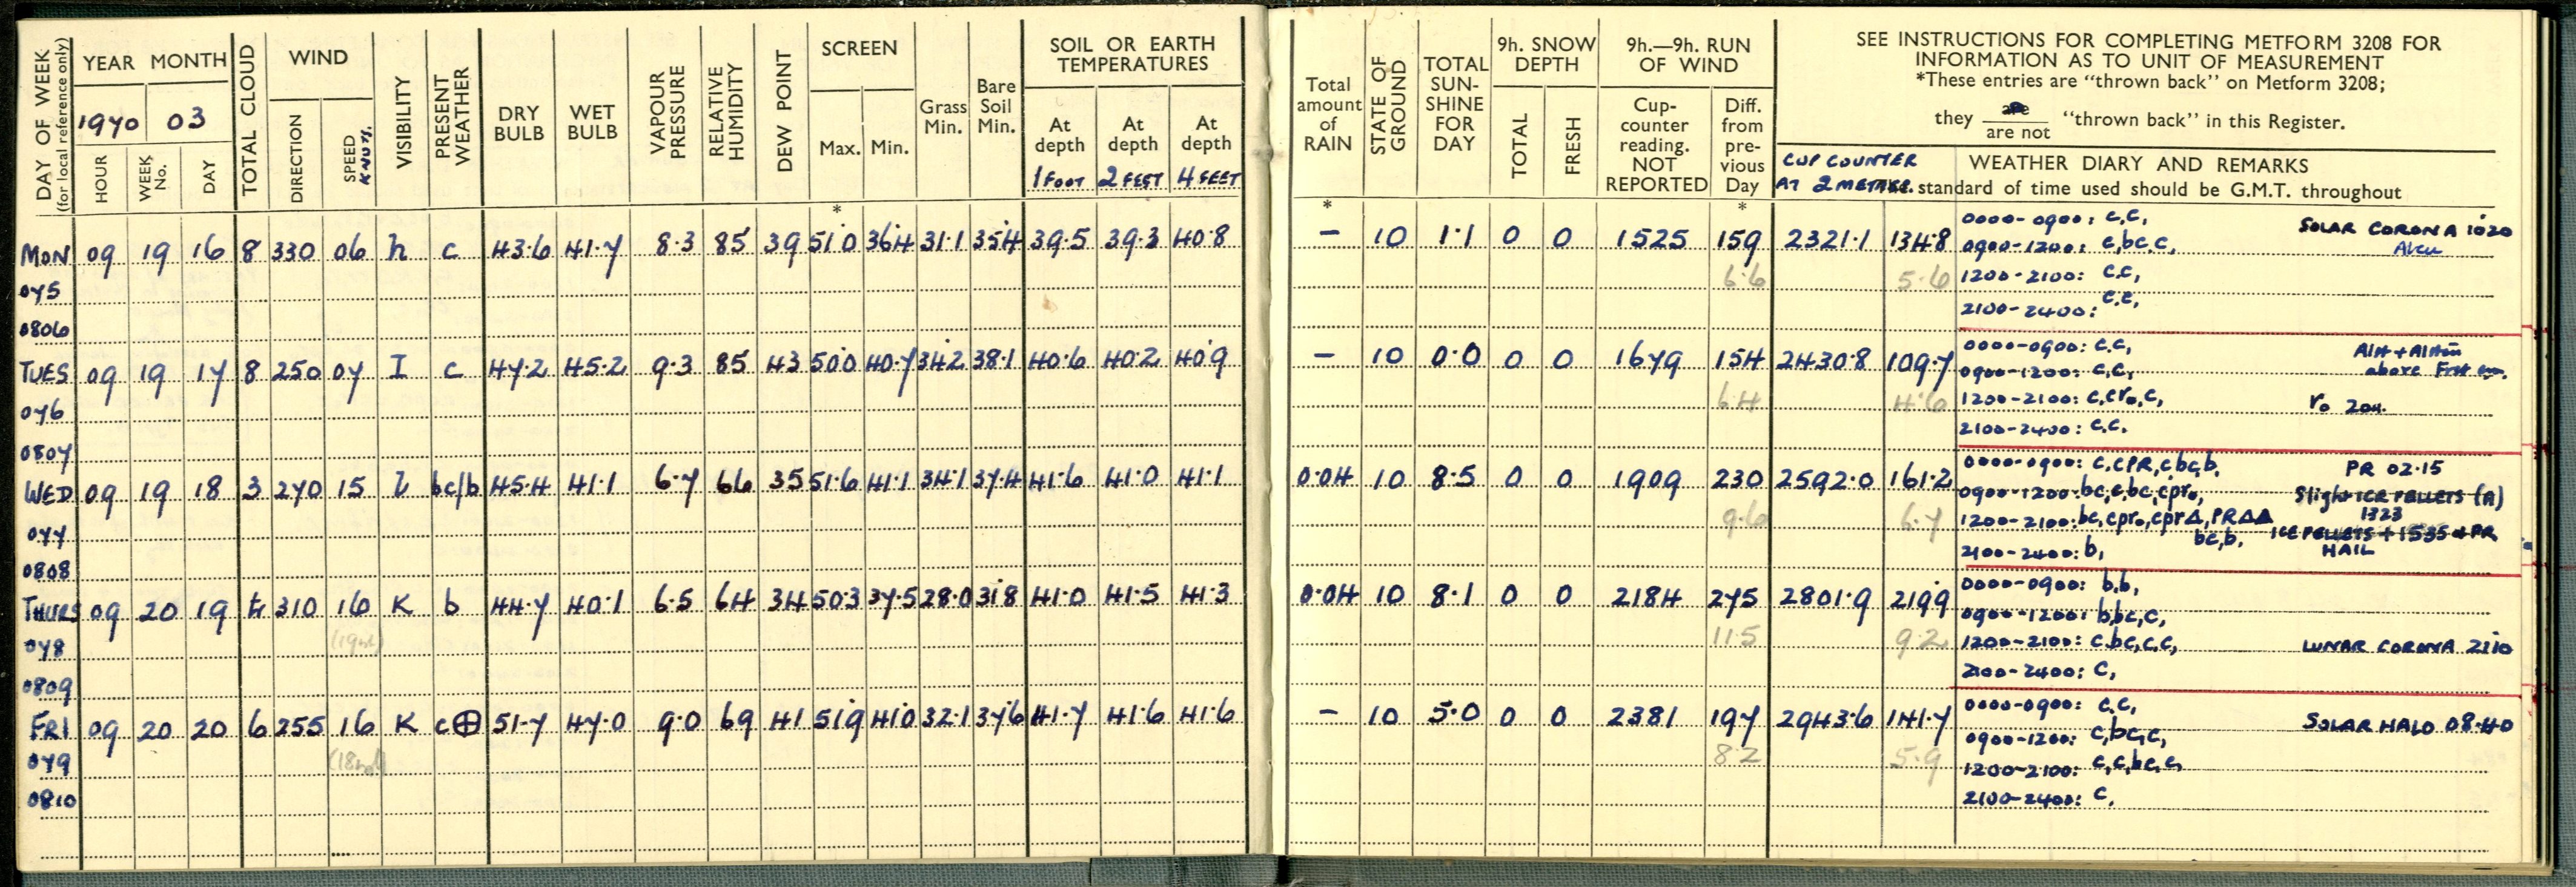 DAY OF WEEK
(for local reference only)
YEAR MONTH
1970 03
HOUR
WEEK No.
DAY
TOTAL CLOUD
WIND
DIRECTION
SPEED KNOTS.
VISIBILITY
PRESENT WEATHER
DRY BULB
WET BULB
VAPOUR PRESSURE
RELATIVE HUMIDITY
DEW POINT
SCREEN
Max. Min.
*
Grass Min.
Bare Soil Min.
SOIL OR EARTH
TEMPERATURES
At depth 1 FOOT
At depth 2 FEET
At depth 4 FEET
Total amount of RAIN
*
STATE OF GROUND
TOTAL SUN-SHINE FOR DAY
9h. SNOW DEPTH
TOTAL
FRESH
9h.—9h. RUN OF WIND
Cup-counter reading. NOT REPORTED
Diff. from pre-vious Day
*
SEE INSTRUCTIONS FOR COMPLETING METFORM 3208 FOR
INFORMATION AS TO UNIT OF MEASUREMENT
*These entries are "thrown back" on Metform 3208;
they are / are not "thrown back" in this Register.
CUP COUNTER
AT 2 METRES.
WEATHER DIARY AND REMARKS
standard of time used should be G.M.T. throughout
MON 09 19 16 8 330 06 h c 43.6 41.7 8.3 85 39 51.0 36.4 31.1 35.4 39.5 39.3 40.8 — 10 1.1 0 0 1525 159 2321.1 134.8
0000-0900: c,c,
SOLAR CORONA 1020
0900-1200: c,bc,c,
Alcu
075
6.6 5.6
1200-2100: c,c,
2100-2400: c,c,
0806
TUES 09 19 17 8 250 07 I c 47.2 45.2 9.3 85 43 50.0 40.7 34.2 38.1 40.6 40.2 40.9 — 10 0.0 0 0 1679 154 2430.8 109.7
0000-0900: c,c,
0900-1200: c,c,
above
076
6.4 4.6
1200-2100: c,cr₀,c,
r₀ 2011.
2100-2400: c,c.
0807
WED 09 19 18 3 270 15 bc/b 45.4 41.1 6.7 66 35 51.6 41.1 34.1 37.4 41.6 41.0 41.1 0.04 10 8.5 0 0 1909 230 2592.0 161.2
0000-0900: c,cPR,c,bc,b,
PR 02.15
0900-1200: bc,c,bc,cpr₀,
Slight ICE PELLETS (A)
1323
077
9.6 6.7
1200-2100: bc,cpr₀,cpr△,PR△△
bc,b,
ICE PELLETS + 1535 + PR
HAIL
2100-2400: b,
0808
THURS 09 20 19 tr 310 16 K b 44.7 40.1 6.5 64 34 50.3 37.5 28.0 31.8 41.0 41.5 41.3 0.04 10 8.1 0 0 2184 275 2801.9 219.9
0000-0900: b,b,
0900-1200: b,bc,c,
078
11.5 9.2
1200-2100: c,bc,c,c,
LUNAR CORONA 2110
2100-2400: c,
0809
FRI 09 20 20 6 255 16 K c⊕ 51.7 47.0 9.0 69 41 51.9 41.0 32.1 37.6 41.7 41.6 41.6 — 10 5.0 0 0 2381 197 2943.6 141.7
0000-0900: c,c,
SOLAR HALO 08.40
0900-1200: c,bc,c,
079
8.2 5.9
1200-2100: c,c,bc,c,
2100-2400: c,
0810